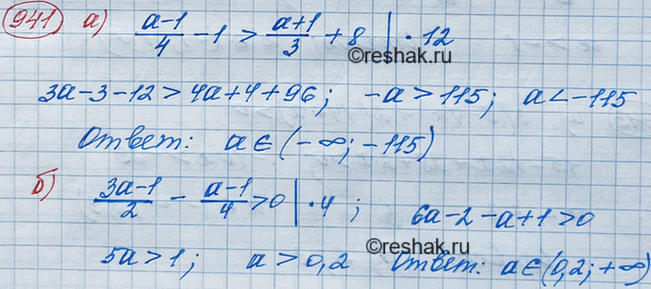 941 а) (a-1)/4 - 1 > (a+1)/3 + 8 | · 12
©reshak.ru
3a-3-12 > 4a+4+96; -a > 115; a < -115
Ответ: a ∈ (-∞; -115)
б) (3a-1)/2 - (a-1)/4 > 0 | · 4; 6a-2-a+1 > 0
©reshak.ru
5a > 1; a > 0,2 Ответ: a ∈ (0,2; +∞)